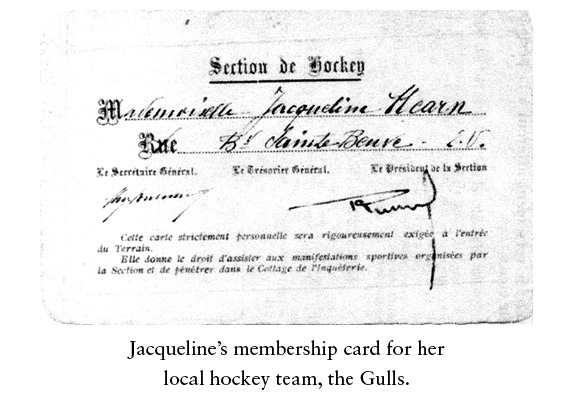 Section de Hockey
Mademoiselle Jacqueline Hearn
Rue Bd Sainte Beuve - E.V.
Le Secrétaire Général. Le Trésorier Général. Le Président de la Section
Cette carte strictement personnelle sera rigoureusement exigée à l'entrée
du Terrain.
Elle donne le droit d'assister aux manifestations sportives organisées par
la Section et de pénétrer dans le Cottage de l'Inquèterie.
Jacqueline's membership card for her
local hockey team, the Gulls.